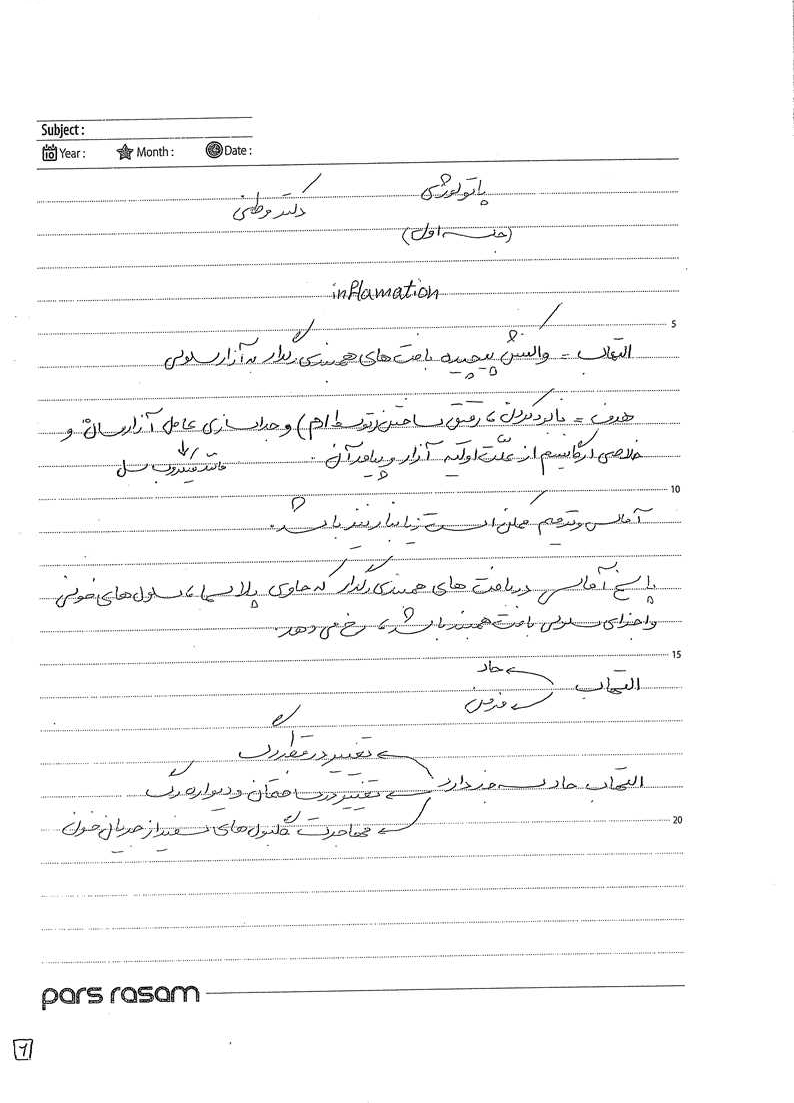 Subject :
Year : Month : Date :
پاتولوژی دکتر وطنی
(جلسه اول)
inflamation
5
التهاب = واکنش پیچیده بافت های همبندی رگدار به آزار سلولی
هدف = نابود کردن، رقیق ساختن (توسط ادم) و جداسازی عامل آزارسان و
خلاصی ارگانیسم از علّت اولیه آزار و پیامد آن.
مانند میکروب سل
10
آماس و ترمیم ممکن است زیانبار نیز باشد.
پاسخ آماسی در بافت های همبندی رگدار که حاوی پلاسما، سلول های خونی
و اجزای سلولی بافت همبند باشد، رخ می دهد.
15
التهاب
حاد
مزمن
التهاب حاد سه جز دارد
تغییر در قطر رگ
تغییر در ساختمان و دیواره رگ
مهاجرت گلبول های سفید از جریان خون
20
pars rasam
1